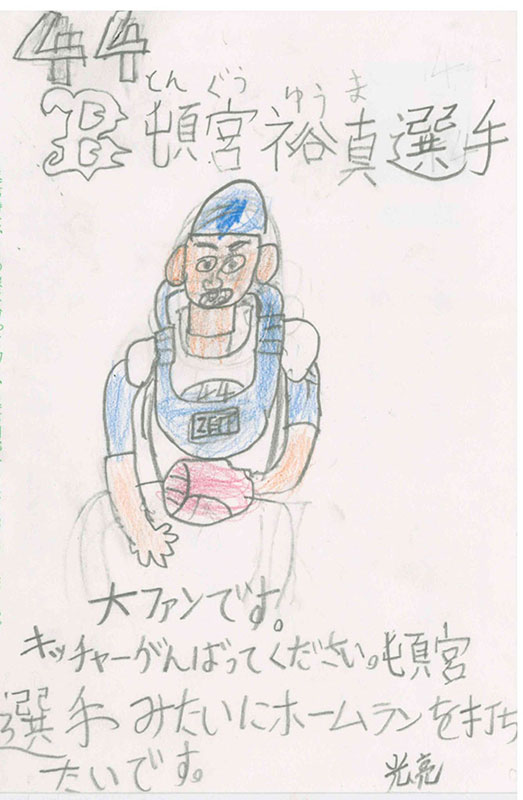 44
とんぐう ゆうま
B 頓宮裕真選手
44
ZETT
大ファンです。
キッチャーがんばってください。頓宮
選手みたいにホームランを打ち
たいです。 光亮